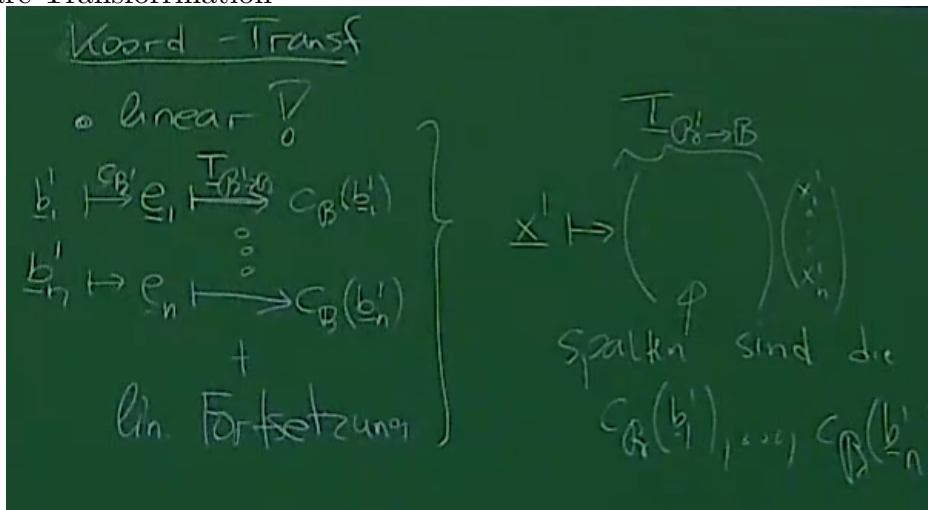 are Transformation
Koord - Transf
• linear !
b'_1 ↦^{c_{B'}} e_1 ↦^{T_{B'→B}} c_B(b'_1)
⋮
b'_n ↦ e_n ↦ c_B(b'_n)
+
lin. Fortsetzung
T_{B'→B}
x' ↦ ( ) (x'_1 ⋮ x'_n)
Spalten sind die
c_B(b'_1), ..., c_B(b'_n